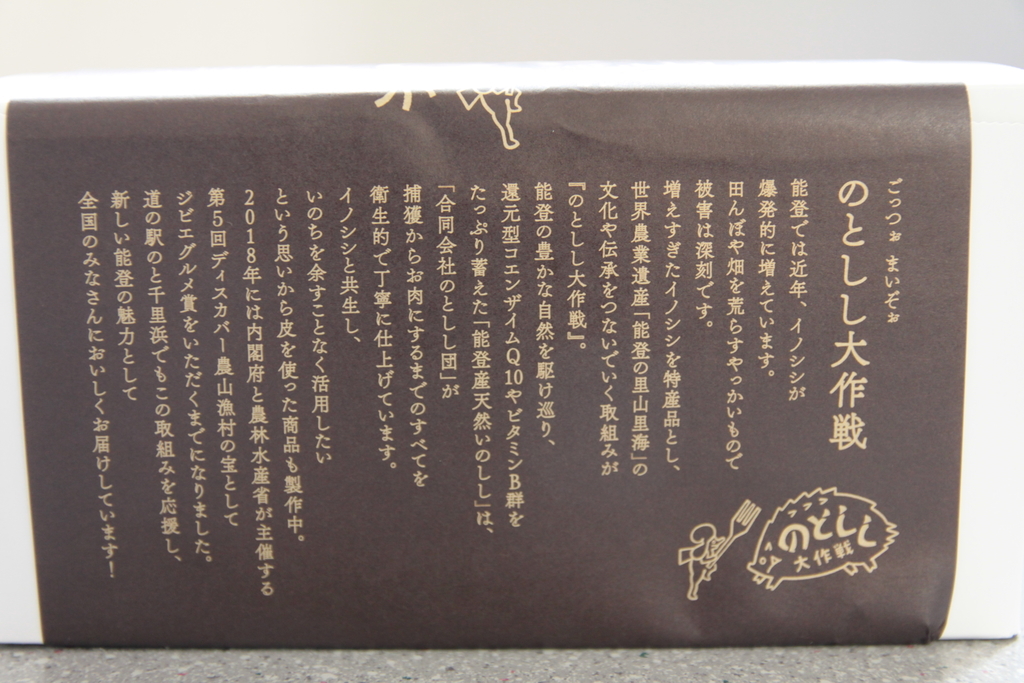 ごっつぉ まいぞぉ
のとしし大作戦
能登では近年、イノシシが
爆発的に増えています。
田んぼや畑を荒らすやっかいもので
被害は深刻です。
増えすぎたイノシシを特産品とし、
世界農業遺産「能登の里山里海」の
文化や伝承をつないでいく取組みが
『のとしし大作戦』。
能登の豊かな自然を駆け巡り、
還元型コエンザイムQ10やビタミンB群を
たっぷり蓄えた「能登産天然いのしし」は、
「合同会社のとしし団」が
捕獲からお肉にするまでのすべてを
衛生的で丁寧に仕上げています。
イノシシと共生し、
いのちを余すことなく活用したい
という思いから皮を使った商品も製作中。
2018年には内閣府と農林水産省が主催する
第5回ディスカバー農山漁村の宝として
ジビエグルメ賞をいただくまでになりました。
道の駅のと千里浜でもこの取組みを応援し、
新しい能登の魅力として
全国のみなさんにおいしくお届けしています!
のとしし
大作戦